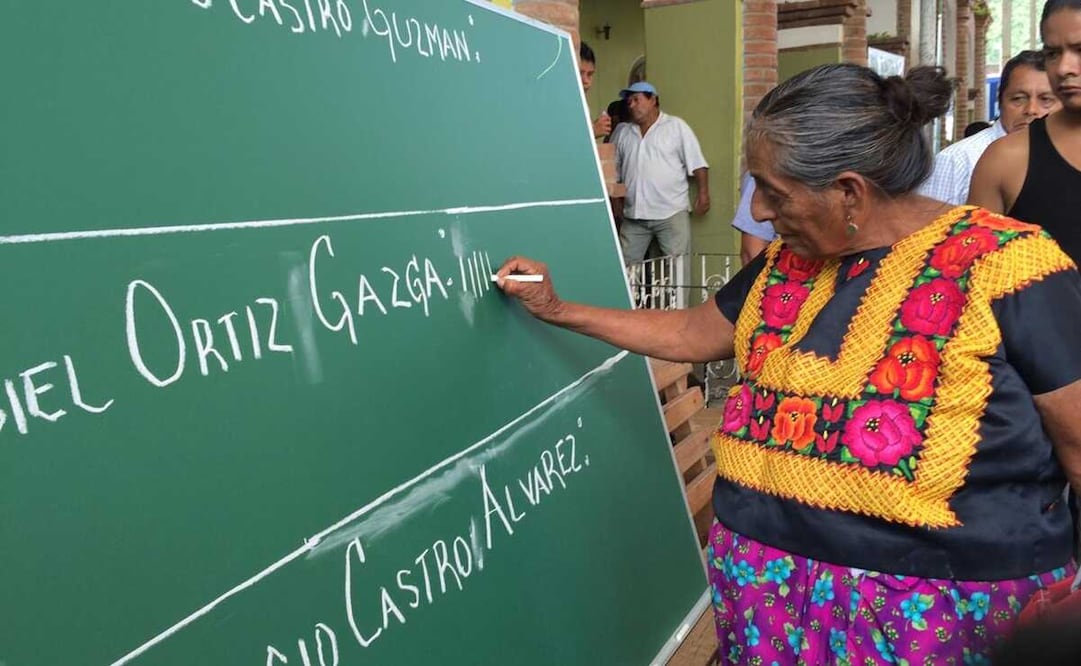 CASTRO GUZMAN:
ORTIZ GAZGA: IIIII
CASTRO ALVAREZ: